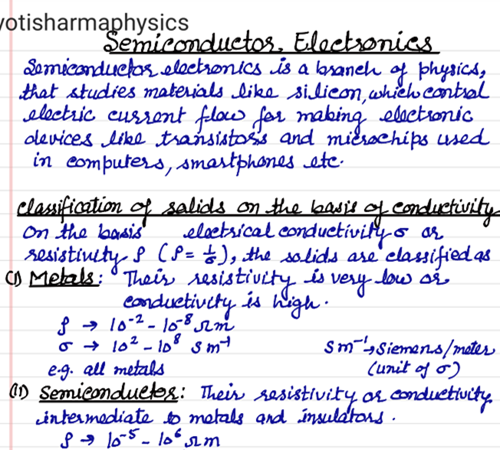 yotisharmaphysics
Semiconductor Electronics
Semiconductor electronics is a branch of physics,
that studies materials like silicon, which control
electric current flow for making electronic
devices like transistors and microchips used
in computers, smartphones etc.
classification of solids on the basis of conductivity
On the basis electrical conductivity σ or
resistivity ρ (ρ = 1/σ), the solids are classified as
(i) Metals: Their resistivity is very low or
conductivity is high.
ρ → 10⁻² - 10⁻⁸ Ωm
σ → 10² - 10⁸ Sm⁻¹ Sm⁻¹ → Siemens/meter
e.g. all metals (unit of σ)
(ii) Semiconductor: Their resistivity or conductivity
intermediate to metals and insulators.
ρ → 10⁻⁵ - 10⁶ Ωm